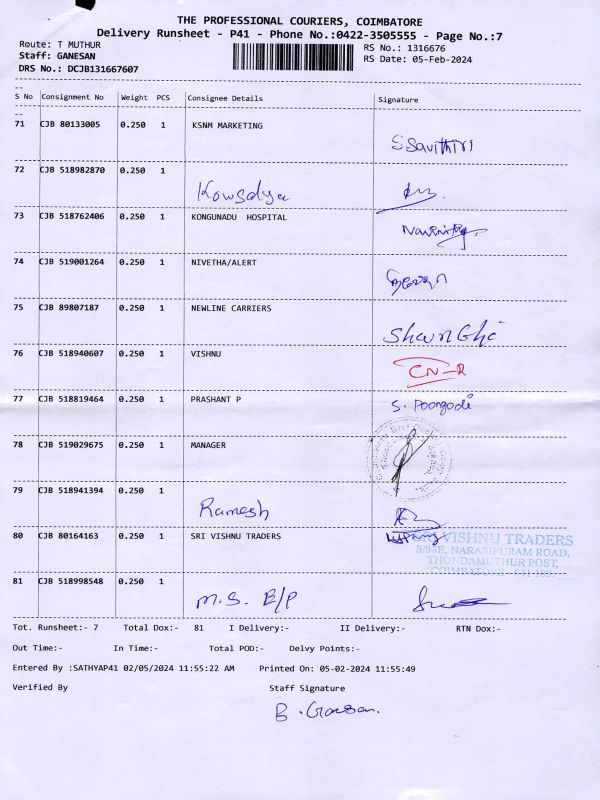 THE PROFESSIONAL COURIERS, COIMBATORE
Delivery Runsheet - P41 - Phone No.:0422-3505555 - Page No.:7
Route: T MUTHUR RS No.: 1316676
Staff: GANESAN RS Date: 05-Feb-2024
DRS No.: DCJB131667607
S No Consignment No Weight PCS Consignee Details Signature
71 CJB 80133005 0.250 1 KSNM MARKETING S Savithiri
72 CJB 518982870 0.250 1 Kowsalya
73 CJB 518762406 0.250 1 KONGUNADU HOSPITAL
74 CJB 519001264 0.250 1 NIVETHA/ALERT
75 CJB 89807187 0.250 1 NEWLINE CARRIERS
76 CJB 518940607 0.250 1 VISHNU CN-R
77 CJB 518819464 0.250 1 PRASHANT P S. Poongodi
78 CJB 519029675 0.250 1 MANAGER
79 CJB 518941394 0.250 1 Ramesh
80 CJB 80164163 0.250 1 SRI VISHNU TRADERS SRI VISHNU TRADERS
5/93E, NARASIPURAM ROAD,
THONDAMUTHUR POST,
81 CJB 518998548 0.250 1 M.S. B/P
Tot. Runsheet:- 7 Total Dox:- 81 I Delivery:- II Delivery:- RTN Dox:-
Out Time:- In Time:- Total POD:- Delvy Points:-
Entered By :SATHYAP41 02/05/2024 11:55:22 AM Printed On: 05-02-2024 11:55:49
Verified By Staff Signature